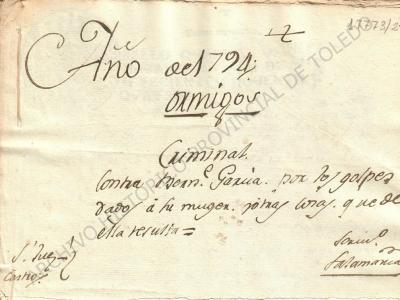 17873/2
Año de 1794
ormigos
Criminal
Contra Bern.º Garcia por los golpes
dados á su muger y otras cosas que de
ella resulta =
S.r Juez
Castro
Scriv.º
Salamanca
ARCHIVO HISTORICO PROVINCIAL DE TOLEDO